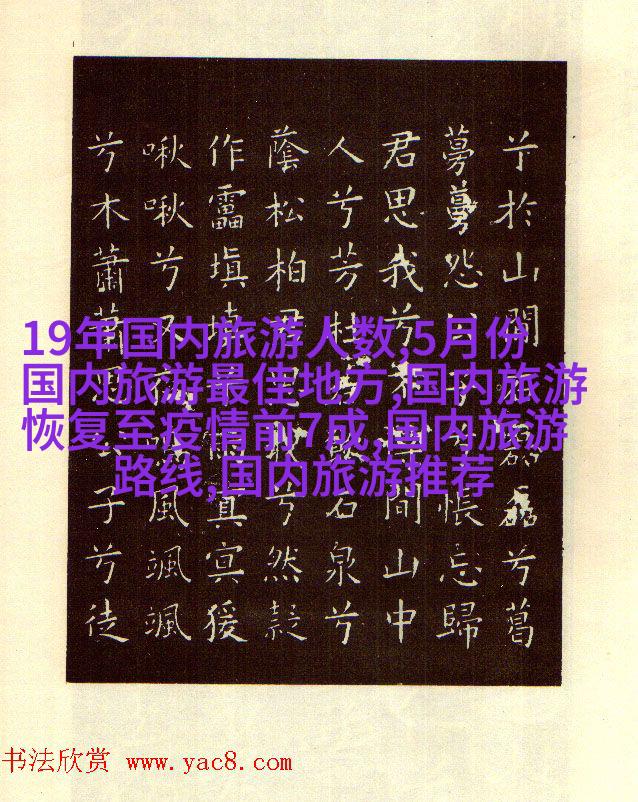 19年国内旅游人数,5月份
国内旅游最佳地方,国内旅游
恢复至疫情前7成,国内旅游
路线,国内旅游推荐
兮於山間磊磊兮葛
蔓蔓怨公子兮悵忘歸
君思我兮不得間山中
人兮芳杜若飲石泉兮
蔭松柏君兮然疑
作靁填填雨冥冥猨
啾啾兮又夜風颯颯
兮木蕭蕭子兮徒
书法欣赏 www.yac8.com